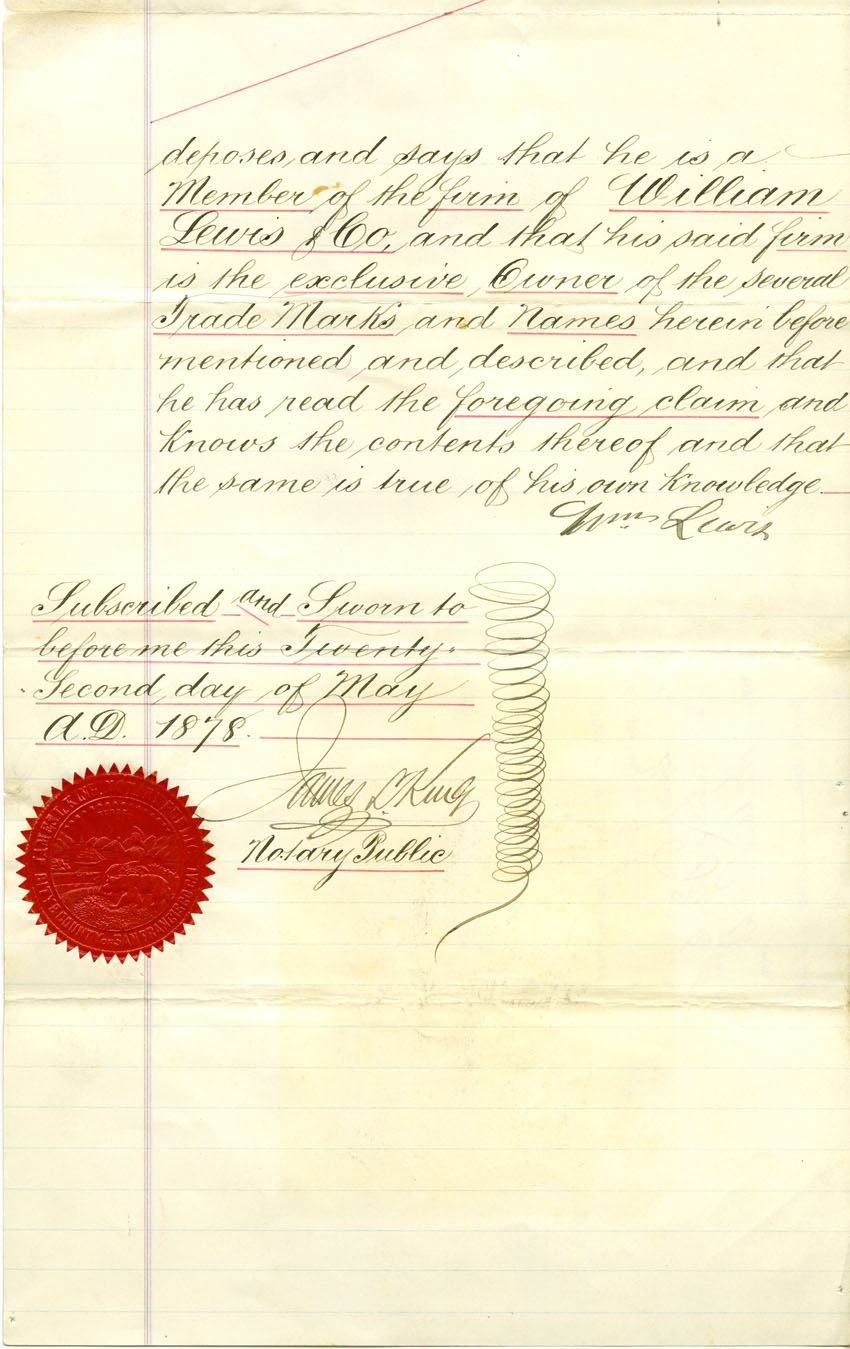 deposes and says that he is a
Member of the firm of William
Lewis & Co, and that his said firm
is the exclusive Owner of the several
Trade Marks and Names herein before
mentioned and described, and that
he has read the foregoing claim and
knows the contents thereof and that
the same is true of his own knowledge.
Wm Lewis
Subscribed and Sworn to
before me this Twenty-
Second day of May
A.D. 1878.
James L King
Notary Public
JAMES L. KING, NOTARY PUBLIC
CITY & COUNTY OF SAN FRANCISCO CAL